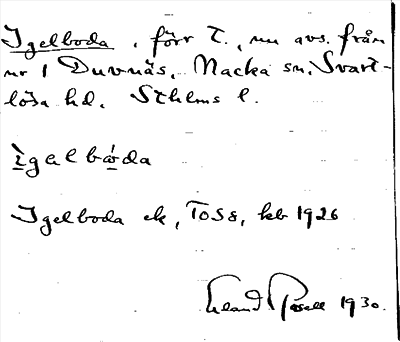 Igelboda, förr T., nu avs. från
nr 1 Duvnäs, Nacka sn. Svart-
lösa hd. Sthlms l.
ìgelbó̲da
Igelboda ek, T058, kb 1926
Erland Rosell 1930.